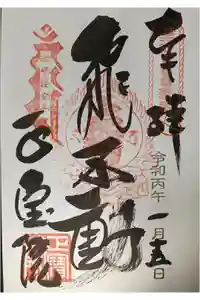 奉拝
令和丙午
一月十五日
飛不動
正宝院